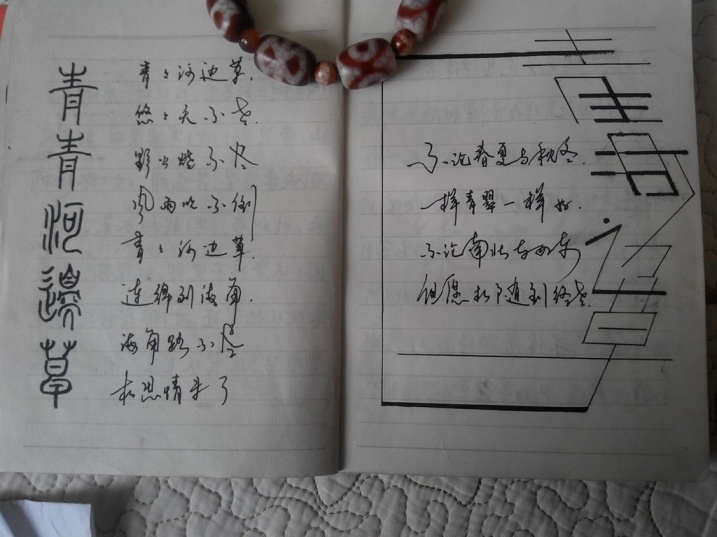 青青河邊草
青々河边草.
悠々天不老.
野火烧不尽
风雨吹不倒
青々河边草.
连绵到海角.
海角路不尽
相思情未了
不论春夏与秋冬.
一样青翠一样好.
不论南北与西东
但愿相随到终老.